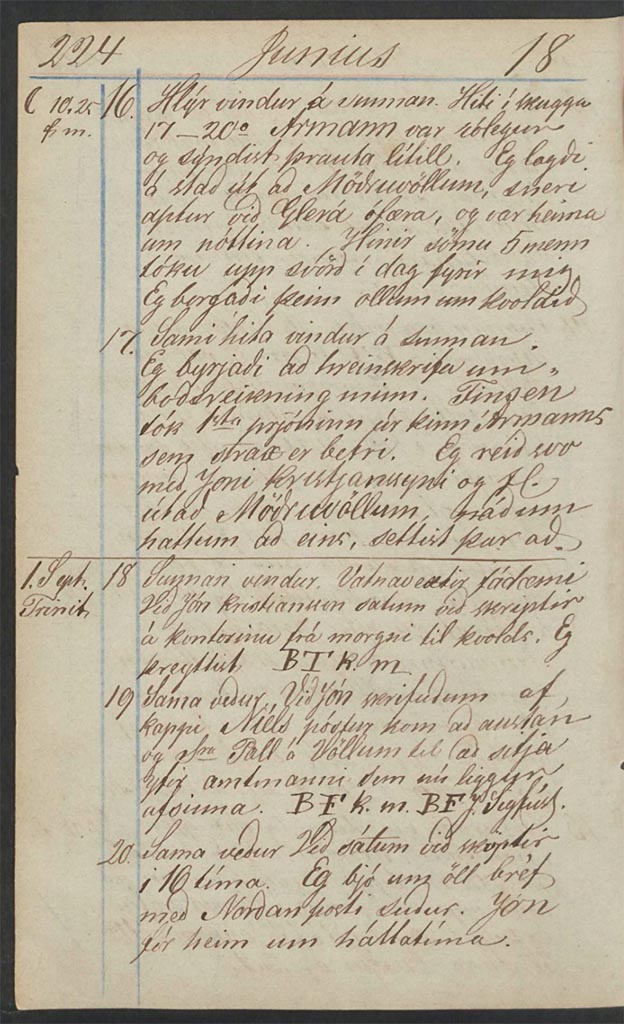 224 Junius 18
☾ 10.25 16. Hlýr vindur á sunnan. Hiti í skugga
f. m. 17–20° Ármann var rólegur
og sýndist þrauta lítill. Eg lagdi
á stad út ad Mödruvöllum, sneri
aptur vid Glerá ófæra, og var heima
um nóttina. Hinir sömu 5 menn
tóku upp svörd í dag fyrir mig
Eg borgadi þeim ollum um kvoldid
17. Sami hita vindur á sunnan.
Eg byrjadi ad hreinskrifa um„
bodsreikning minn. Finsen
tók 1sta prjóninn úr kinn Ármanns
sem strax er betri. Eg reid svo
med Jóni Kristjanssyni og fl.
út ad Mödruvöllum, nádum
háttum ad eins, settist þar ad.
1. S. p. 18 Sunnan vindur. Vatnavextir fádæmi
Trinit. Vid Jón Kristiansson satum vid skriptir
á kontorinu frá morgni til kvolds. Eg
þreyttist B T k. m.
19 Sama vedur. Vid Jón skrifudum af
kappi, Niels póstur kom ad austan
og Sra Páll á Völlum til ad sitja
yfir amtmanni sem nú liggur
afsinna. B F k. m. B F J. Sigfúss.
20. Sama vedur Vid sátum vid skriptir
í 16 tíma. Eg bjó um öll bréf
med Nordanpósti sudur. Jón
fór heim um háttatíma.